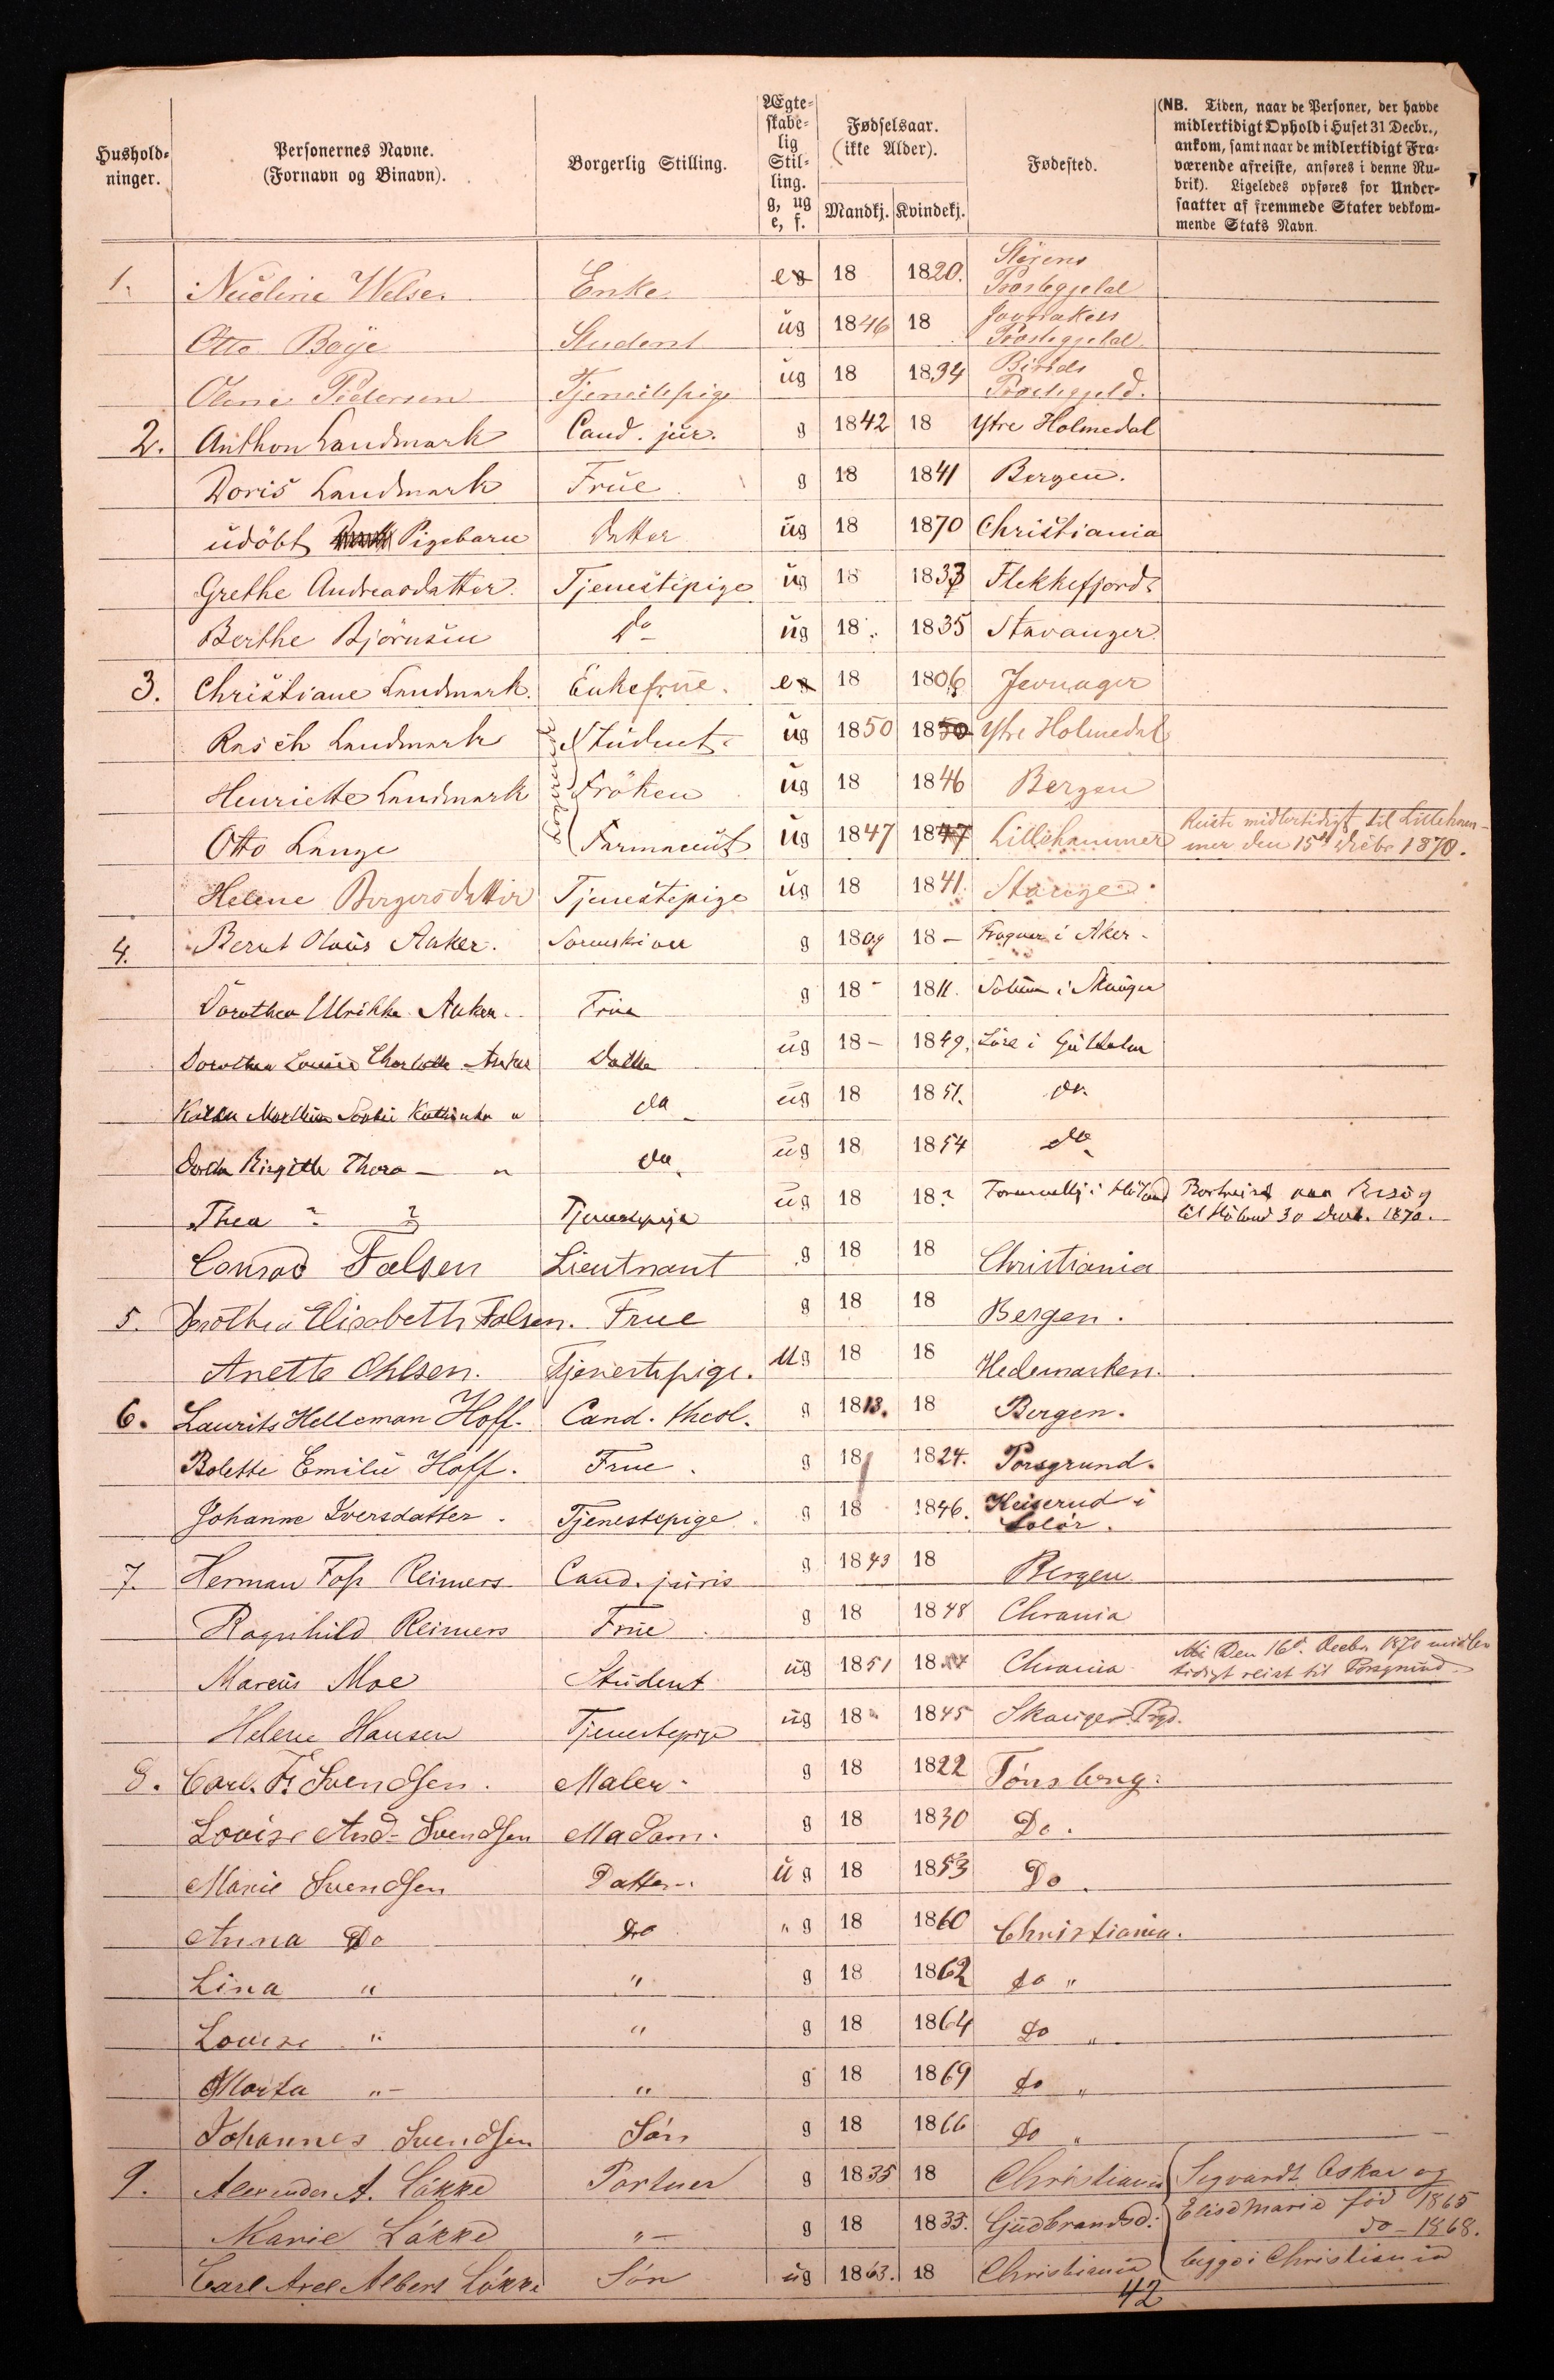 Hushold-
ninger.
Personernes Navne.
(Fornavn og Binavn).
Borgerlig Stilling.
Ægte-
skabe-
lig
Stil-
ling.
g, ug
e, f.
Fødselsaar.
(ikke Alder).
Mandkj. Kvindekj.
Fødested.
(NB. Tiden, naar de Personer, der havde
midlertidigt Ophold i Huset 31 Decbr.,
ankom, samt naar de midlertidigt Fra-
værende afreiste, anføres i denne Ru-
brik). Ligeledes opføres for Under-
saatter af fremmede Stater vedkom-
mende Stats Navn.
1. Enke e 18 1820. Størens Præstegjeld
Otto Student ug 1846 18 Præstegjeld
Oline Pedersen Tjenestepige ug 18 1834 Birids Præstegjeld.
2. Anthon Landmark Cand. jur. g 1842 18 Ytre Holmedal
Doris Landmark Frue g 18 1841 Bergen.
udöbt Pigebarn Datter ug 18 1870 Christiania
Grethe Andreasdatter. Tjenestepige ug 18 1833 Flekkefjord
Berthe Björnsen Do ug 18 1835 Stavanger.
3. Christiane Landmark. Enkefrue. e 18 1806 Jevnager
Rasch Landmark Student ug 1850 18 Ytre Holmedal
Henriette Landmark Fröken ug 18 1846 Bergen
Otto Lange Farmaceut ug 1847 18 Lillehammer Reiste midlertidigt til Lilleham-
mer den 15de Decbr 1870.
Helene Bergersdatter Tjenestepige ug 18 1841. Stange
4. Bernt Olaus Anker. Sorenskriver g 1809 18 - Frogner i Aker.
Dorothea Ulrikke Anker. Frue g 18 - 1811.
Dorothea Louise Charlotte Anker Datter ug 18 - 1849.
Sophie Kathinka " do ug 18 1851. do.
Birgitte Thora - " do. ug 18 1854 do
Thea ? ? Tjenestepige ug 18 18? i Höland Bortreist paa Besög
til Höland 30 Decb. 1870.
Conrad Falsen Lieutnant g 18 18 Christiania
5. Dorothea Elisabeth Falsen. Frue g 18 18 Bergen.
Anette Ohlsen. Tjenestepige. ug 18 18 Hedemarken.
6. Laurits Helleman Hoff. Cand. theol. g 1813. 18 Bergen.
Bolette Emilie Hoff. Frue. g 18 1824. Porsgrund.
Johanne Iversdatter. Tjenestepige. g 18 1846. Keiserud i
Solör.
7. Herman Foss Reimers Cand. juris g 1843 18 Bergen
Ragnhild Reimers Frue. g 18 1848 Chrania
Marcus Moe Student ug 1851 18 Chrania Den 16de Decbr. 1870 midler
tidigt reist til Porsgrund
Helene Hansen Tjenestepige ug 18 1845 Skauger Prgd.
8. Carl. Fr. Svendsen. Maler. g 18 1822 Tönsberg.
Lovise And- Svendsen Madam. g 18 1830 Do.
Marie Svendsen Datter. ug 18 1853 Do.
Anna Do Do " g 18 1860 Christiania.
Lina " " g 18 1862 do "
Louise " " g 18 1864 do "
Marta " - " g 18 1869 do "
Johannes Svendsen Sön g 18 1866 do "
9. Alexander A. Lökke Portner g 1835 18 Christiania Sigvardt Oskar og
Marie Lökke " - g 18 1835. Gudbrandsd: Elise Maria föd 1865
do - 1868.
Carl Axel Albert Lökke Sön ug 1863. 18 Christiania begge i Christiania
42